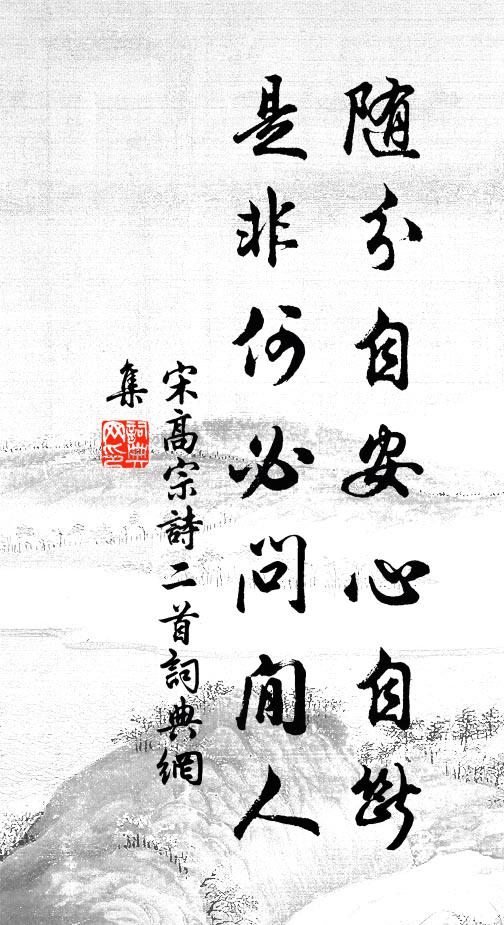 随分自安心自断
是非何必问闲人
宋高宗詩二首詞典網
集